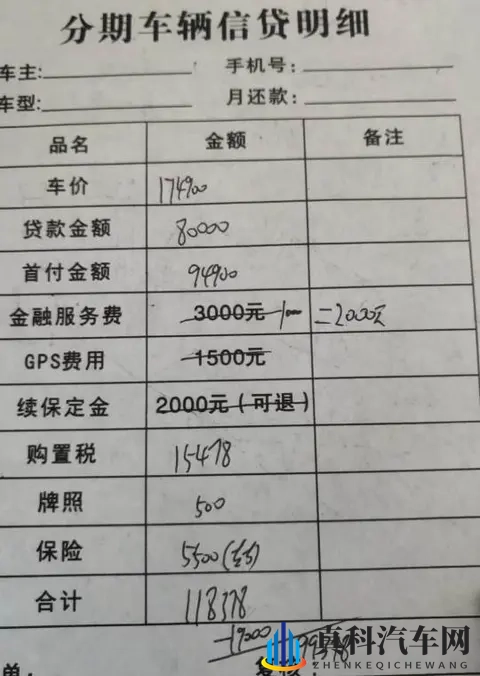 分期车辆信贷明细
车主: 手机号:
车型: 月还款:
品名 金额 备注
车价 174900
贷款金额 80000
首付金额 94900
金融服务费 3000元 -1000 =2000元
GPS费用 1500元
续保定金 2000元(可退)
购置税 15478
牌照 500
保险 5500
合计 118378
-19000
真科汽车网
ZHENKEQICHEWANG